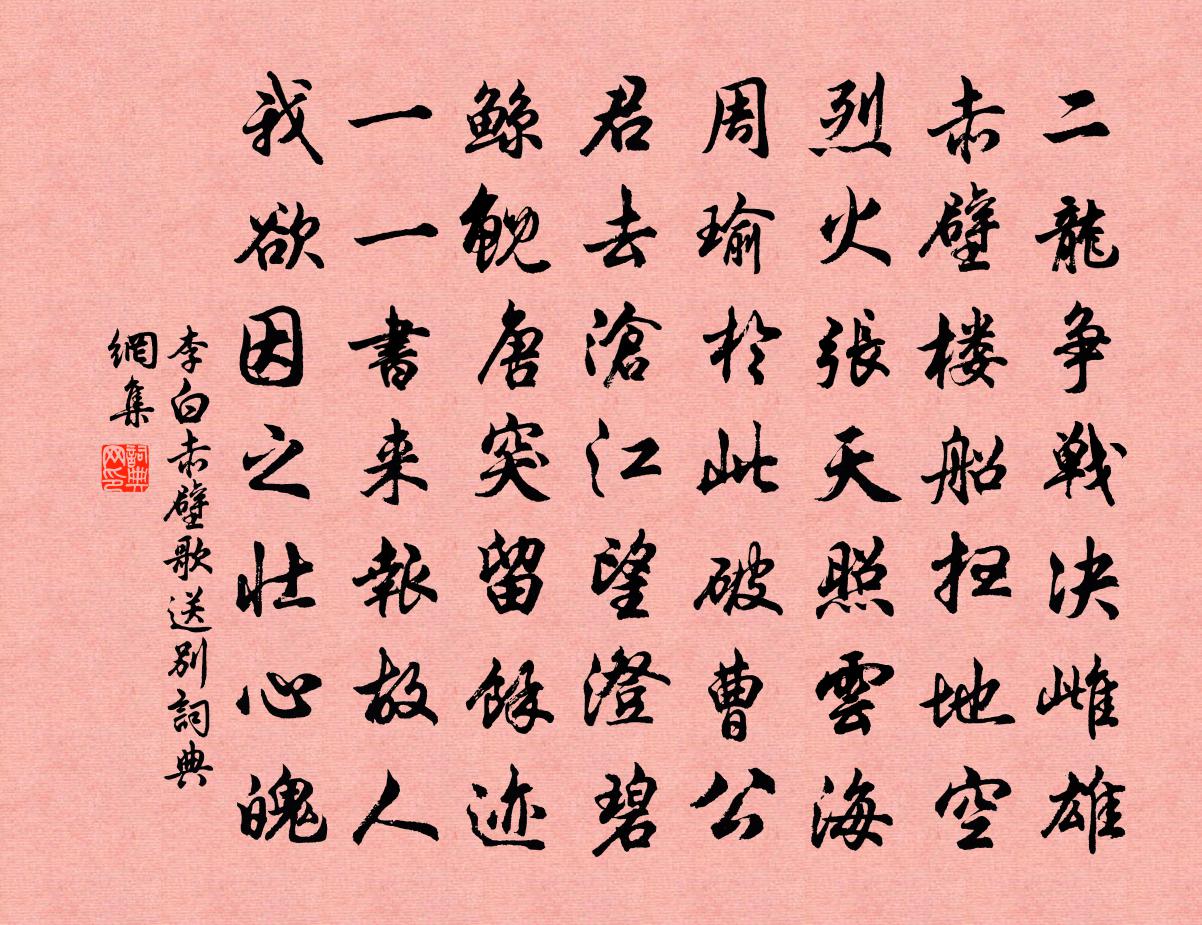 二龍争戦决雌雄
赤壁楼船扫地空
烈火張天照雲海
周瑜於此破曹公
君去滄江望澄碧
鯨鯢唐突留餘迹
一一書来報故人
我欲因之壮心魄
李白赤壁歌送别詞典
網集
詞典
网印